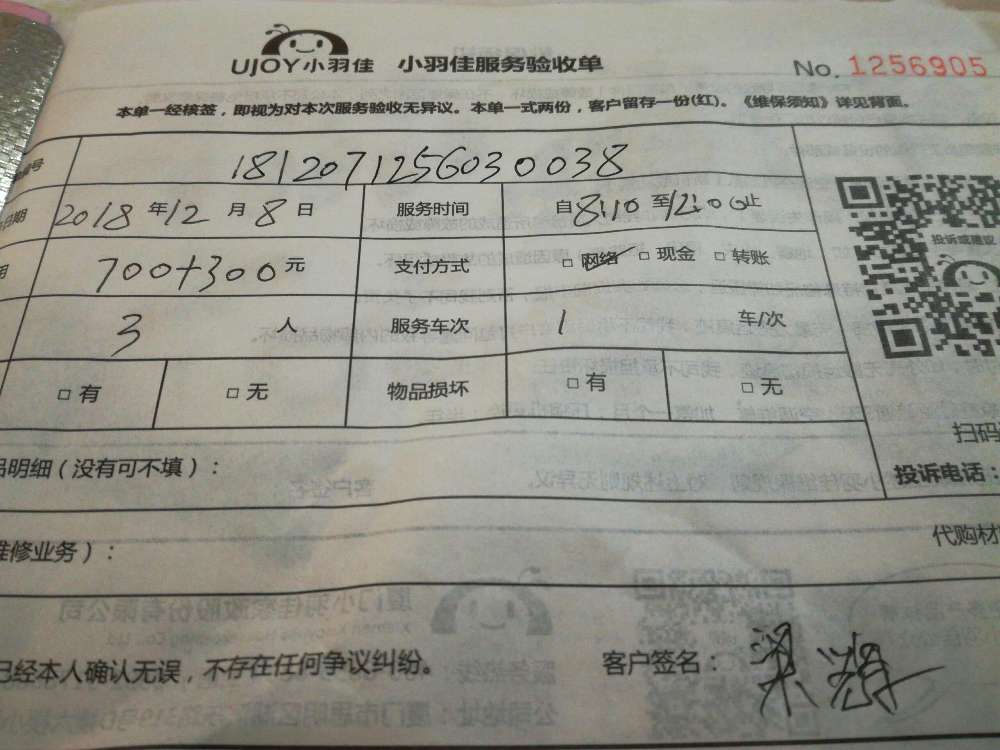 UJOY小羽佳 小羽佳服务验收单 No. 1256905
本单一经核签，即视为对本次服务验收无异议。本单一式两份，客户留存一份(红)。《维保须知》详见背面。
号 1812071256030038
日期 2018 年 12 月 8 日 服务时间 自 8:10 至 12:00 止
700+300 元 支付方式 □ 网络 □ 现金 □ 转账
投诉或建议
3 人 服务车次 1 车/次
□ 有 □ 无 物品损坏 □ 有 □ 无
扫码
品明细（没有可不填）：
投诉电话：
维修业务）：
代购材
已经本人确认无误，不存在任何争议纠纷。 客户签名：